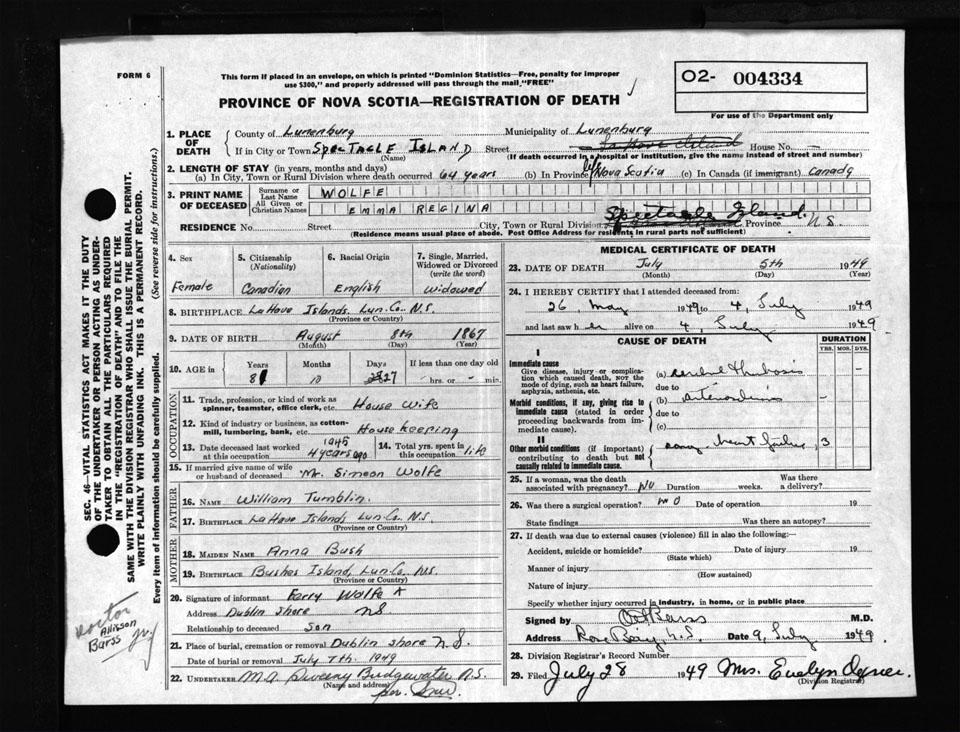 FORM 6
This form if placed in an envelope, on which is printed "Dominion Statistics—Free, penalty for improper
use $300," and properly addressed will pass through the mail "FREE"
PROVINCE OF NOVA SCOTIA—REGISTRATION OF DEATH
02- 004334
For use of the Department only
1. PLACE OF DEATH
County of Lunenburg Municipality of Lunenburg
If in City or Town SPECTACLE ISLAND Street La Have Island House No. —
(Name) (If death occurred in a hospital or institution, give the name instead of street and number)
2. LENGTH OF STAY (in years, months and days)
(a) In City, Town or Rural Division where death occurred 64 years (b) In Province life Nova Scotia (c) In Canada (if immigrant) Canada
3. PRINT NAME OF DECEASED
Surname or Last Name WOLFE
All Given or Christian Names EMMA REGINA
Spectacle Island.
RESIDENCE No. Street City, Town or Rural Division Province N.S.
(Residence means usual place of abode. Post Office Address for residents in rural parts not sufficient)
4. Sex
Female
5. Citizenship (Nationality)
Canadian
6. Racial Origin
English
7. Single, Married, Widowed or Divorced (write the word)
Widowed
8. BIRTHPLACE LaHave Islands Lun. Co. N.S.
(Province or Country)
9. DATE OF BIRTH August 8th 1867
(Month) (Day) (Year)
10. AGE in Years Months Days If less than one day old
81 10 27 hrs. or — min.
OCCUPATION
11. Trade, profession, or kind of work as spinner, teamster, office clerk, etc. House Wife
12. Kind of industry or business, as cotton-mill, lumbering, bank, etc. House Keeping
13. Date deceased last worked at this occupation 1945 4 years ago
14. Total yrs. spent in this occupation life
15. If married give name of wife or husband of deceased Mr. Simeon Wolfe
FATHER
16. NAME William Tumblin.
17. BIRTHPLACE LaHave Islands Lun. Co. N.S.
(Province or Country)
MOTHER
18. MAIDEN NAME Anna Bush
19. BIRTHPLACE Bushes Island, Lun. Co. N.S.
(Province or Country)
20. Signature of informant Wolfe
Address Dublin Shore NS
Relationship to deceased Son
21. Place of burial, cremation or removal Dublin Shore N.S.
Date of burial or removal July 7th. 1949
22. UNDERTAKER M.A. Sweeny Bridgewater N.S.
(Name and address)
per.
MEDICAL CERTIFICATE OF DEATH
23. DATE OF DEATH July 5th 1949
(Month) (Day) (Year)
24. I HEREBY CERTIFY that I attended deceased from:
26, May 1949 to 4, July 1949
and last saw her alive on 4, July 1949
CAUSE OF DEATH
DURATION
YRS. MOS. DYS.
I
Immediate cause
Give disease, injury or complication which caused death, NOT the mode of dying, such as heart failure, asphyxia, asthenia, etc.
(a) cerebral thrombosis —
due to
Morbid conditions, if any, giving rise to immediate cause (stated in order proceeding backwards from immediate cause).
(b) —
due to
(c)
II
Other morbid conditions (if important) contributing to death but not causally related to immediate cause.
heart failure 3
25. If a woman, was the death associated with pregnancy? NO Duration weeks. Was there a delivery?
26. Was there a surgical operation? NO Date of operation 19
State findings Was there an autopsy?
27. If death was due to external causes (violence) fill in also the following:—
Accident, suicide or homicide? Date of injury 19
(State which)
Manner of injury
(How sustained)
Nature of injury
Specify whether injury occurred in industry, in home, or in public place
Signed by Barss M.D.
Address Rose Bay N.S. Date 9, July 1949.
28. Division Registrar's Record Number
29. Filed July 28 1949 Mrs. Evelyn
(Division Registrar)
SEC. 46—VITAL STATISTICS ACT MAKES IT THE DUTY
OF THE UNDERTAKER OR PERSON ACTING AS UNDER-
TAKER TO OBTAIN ALL THE PARTICULARS REQUIRED
IN THE "REGISTRATION OF DEATH" AND TO FILE THE
SAME WITH THE DIVISION REGISTRAR WHO SHALL ISSUE THE BURIAL PERMIT.
WRITE PLAINLY WITH UNFADING INK. THIS IS A PERMANENT RECORD.
Every item of information should be carefully supplied. (See reverse side for instructions.)
Doctor
Allison
Barss Jr.